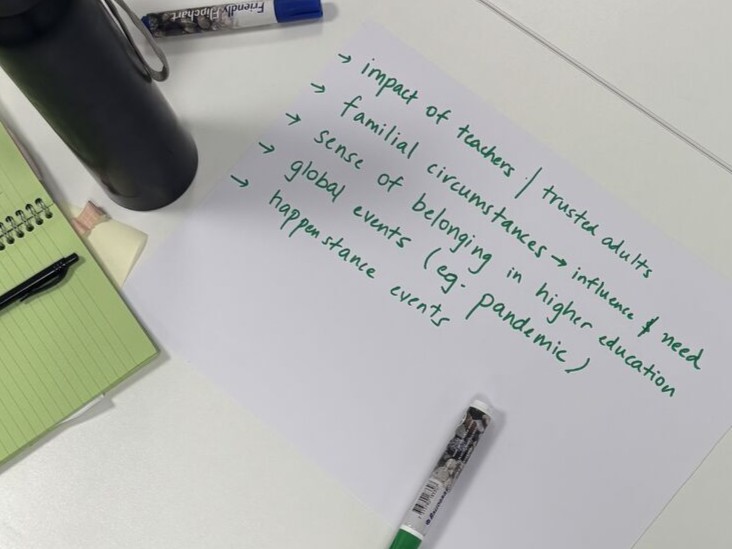 Friendly Flipchart
→ impact of teachers / trusted adults
→ familial circumstances → influence & need
→ sense of belonging in higher education
→ global events (eg. pandemic)
→ happenstance events